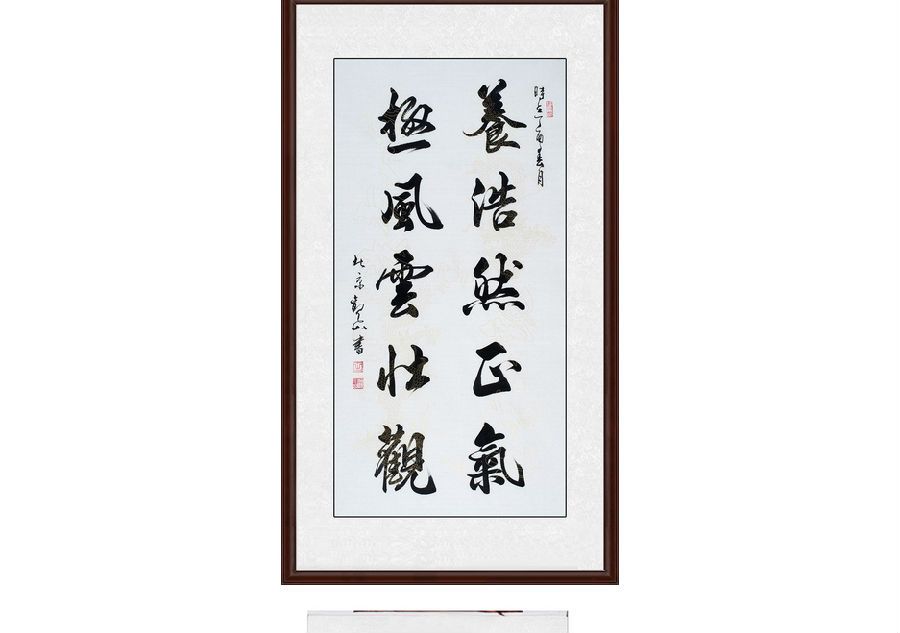 時在丁酉春月
養浩然正氣
極風雲壯觀
北京觀山書